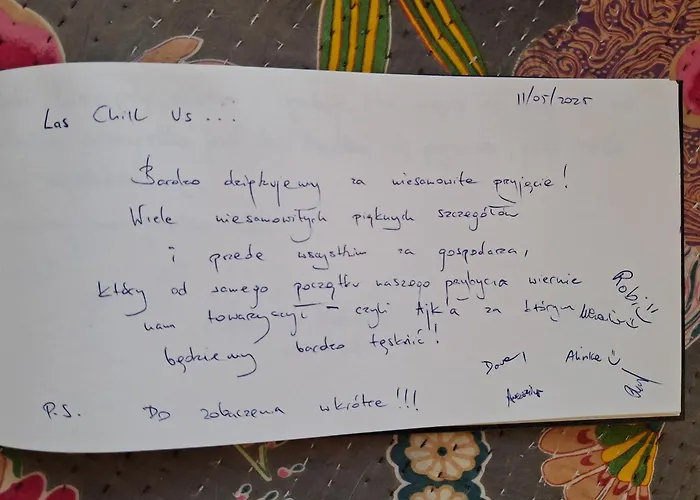 11/05/2025
Las Chill Us...
Bardzo dziękujemy za niesamowite przyjęcie!
Wiele niesamowitych pięknych szczegółów
i przede wszystkim za gospodarza,
który od samego początku naszego przybycia wiernie
nam towarzyszył – czyli Ajk'a za którym
będziemy bardzo tęsknić!
Robi
Alinka
P.S. Do zobaczenia wkrótce!!!